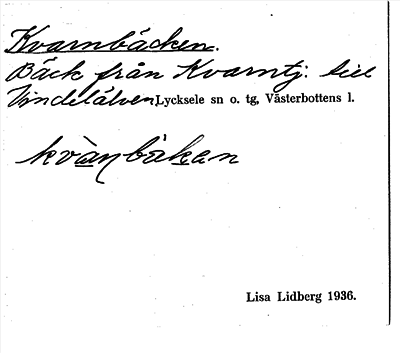 Kvarnbäcken.
Bäck från Kvarntj: till
Vindelälven, Lycksele sn o. tg, Västerbottens l.
kvàṇbäkan
Lisa Lidberg 1936.